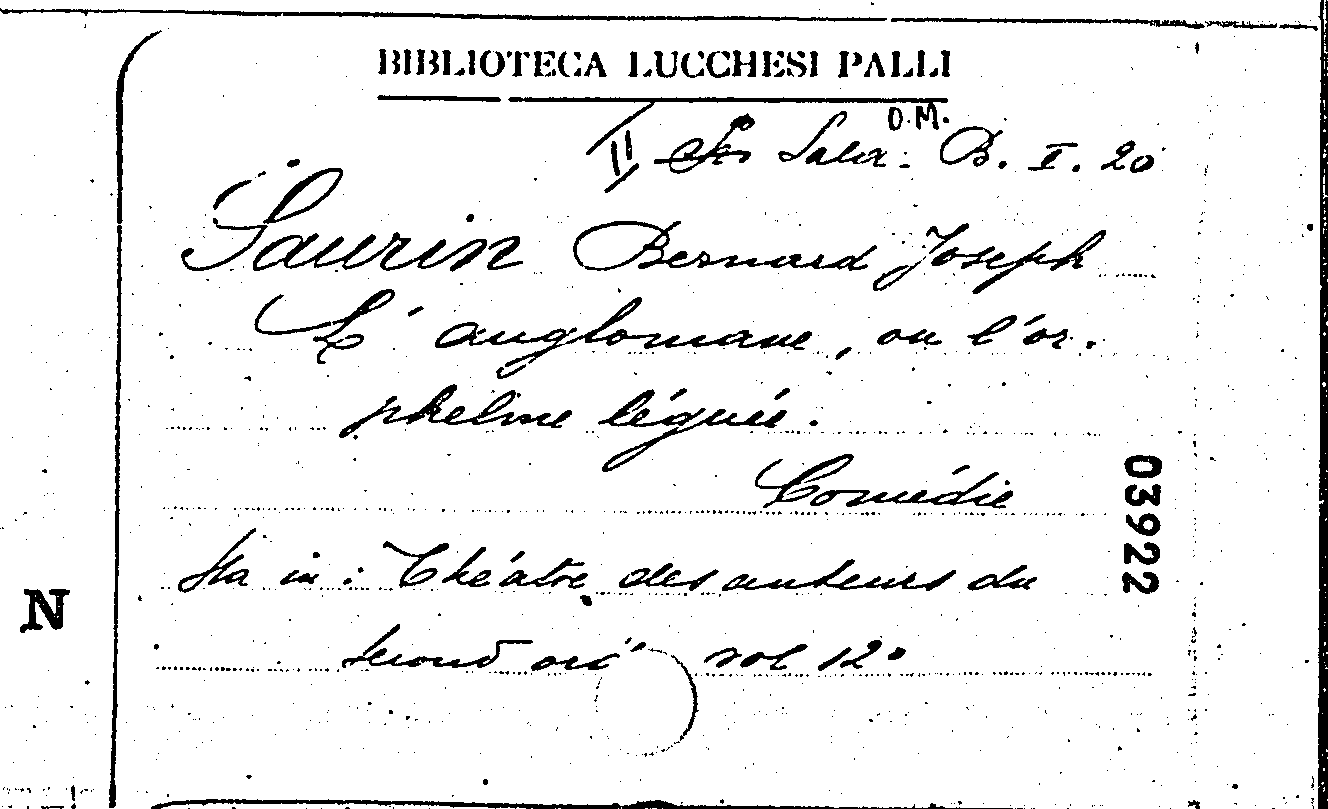 BIBLIOTECA LUCCHESI PALLI
O.M.
II Sala. B. I. 20
Saurin Bernard Joseph
L'anglomane, ou l'or-
pheline léguée.
Comédie
Sta in: Théâtre des auteurs du
second vol 12°
03922
N